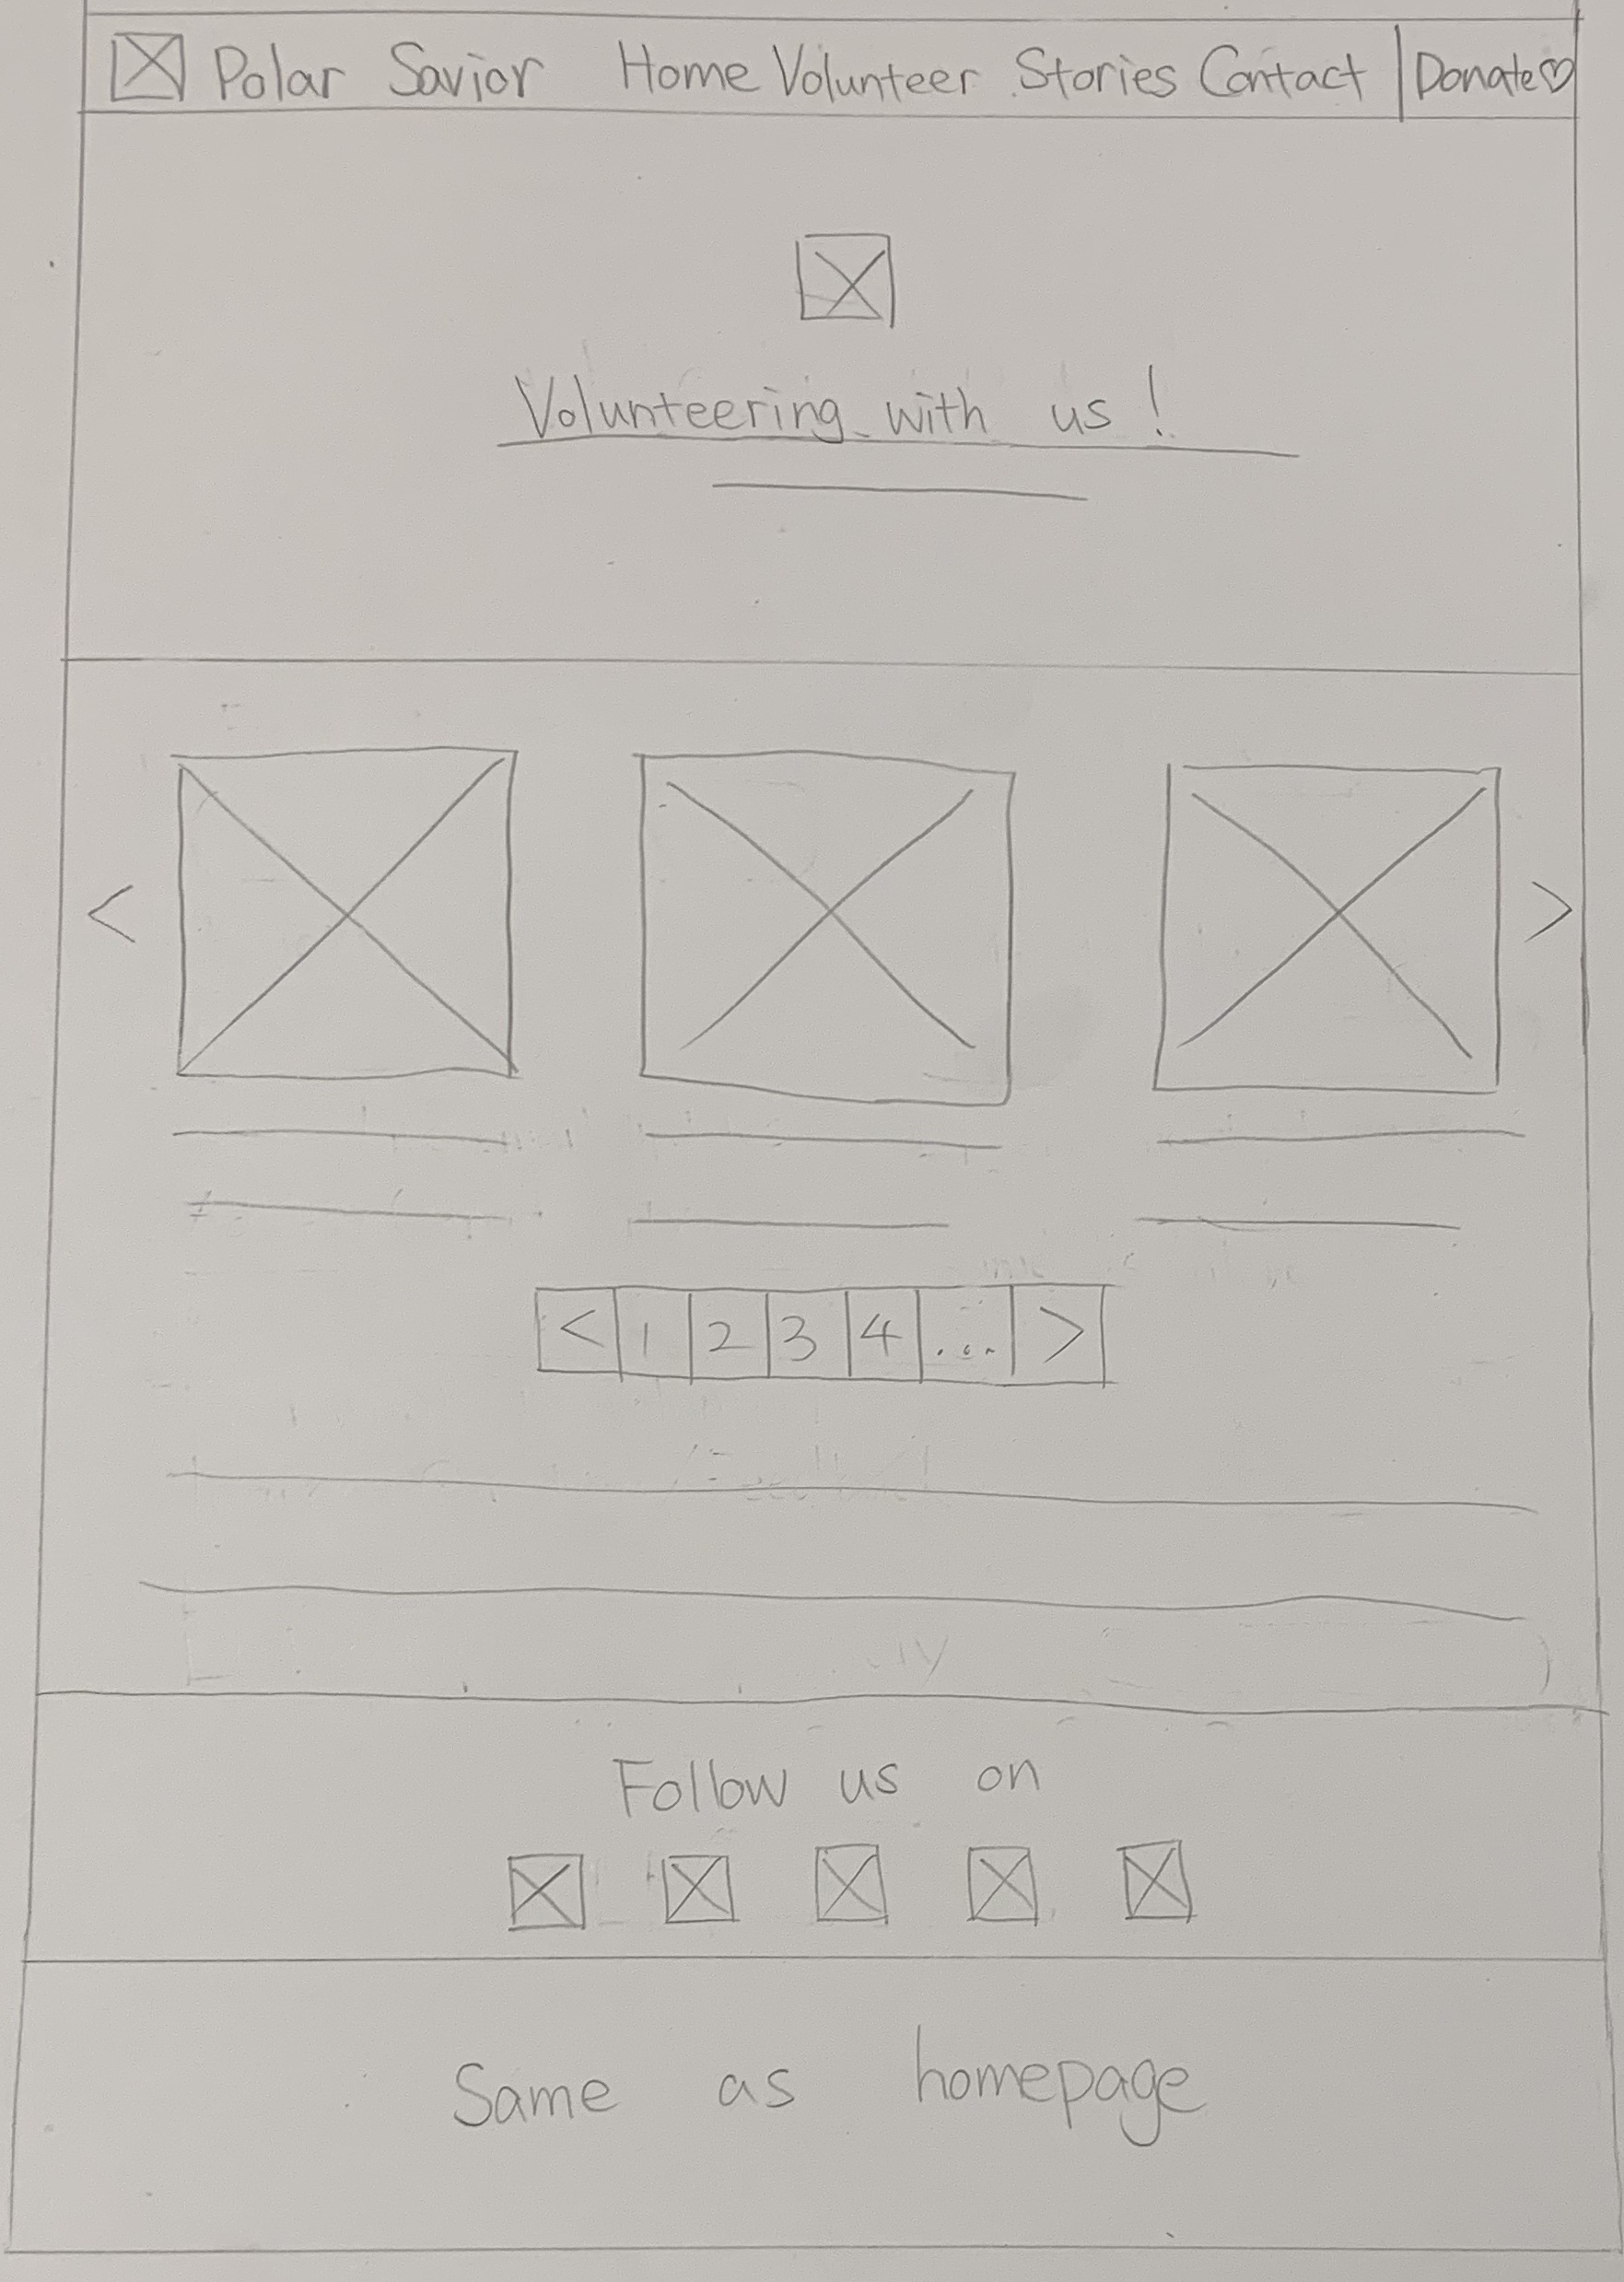 Polar Savior Home Volunteer Stories Contact Donate♡
Volunteering with us!
<
>
< 1 2 3 4 ... >
Follow us on
Same as homepage